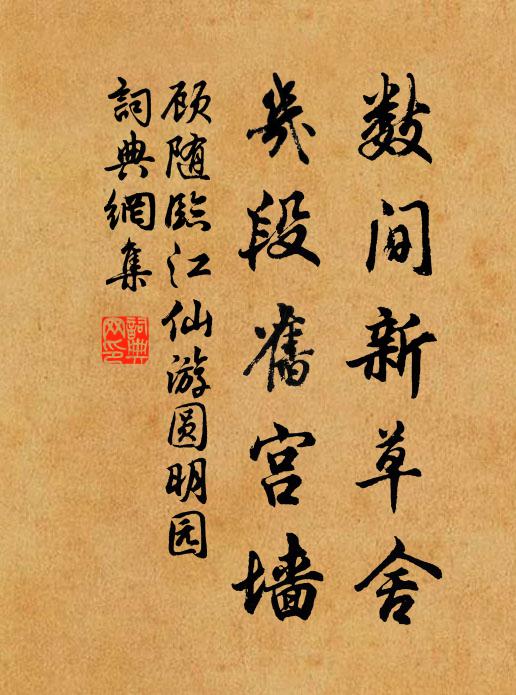 数间新草舍
几段舊宫墙
顾随臨江仙游圆明园
詞典網集
詞典网印